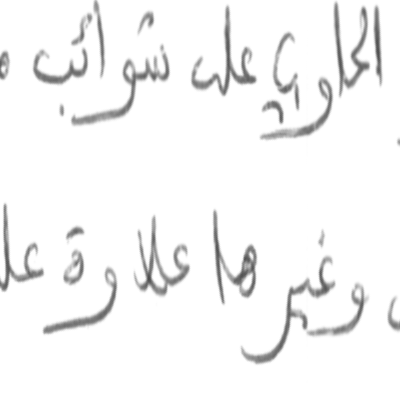 الحاوي على شوائب
وغيرها علاوة